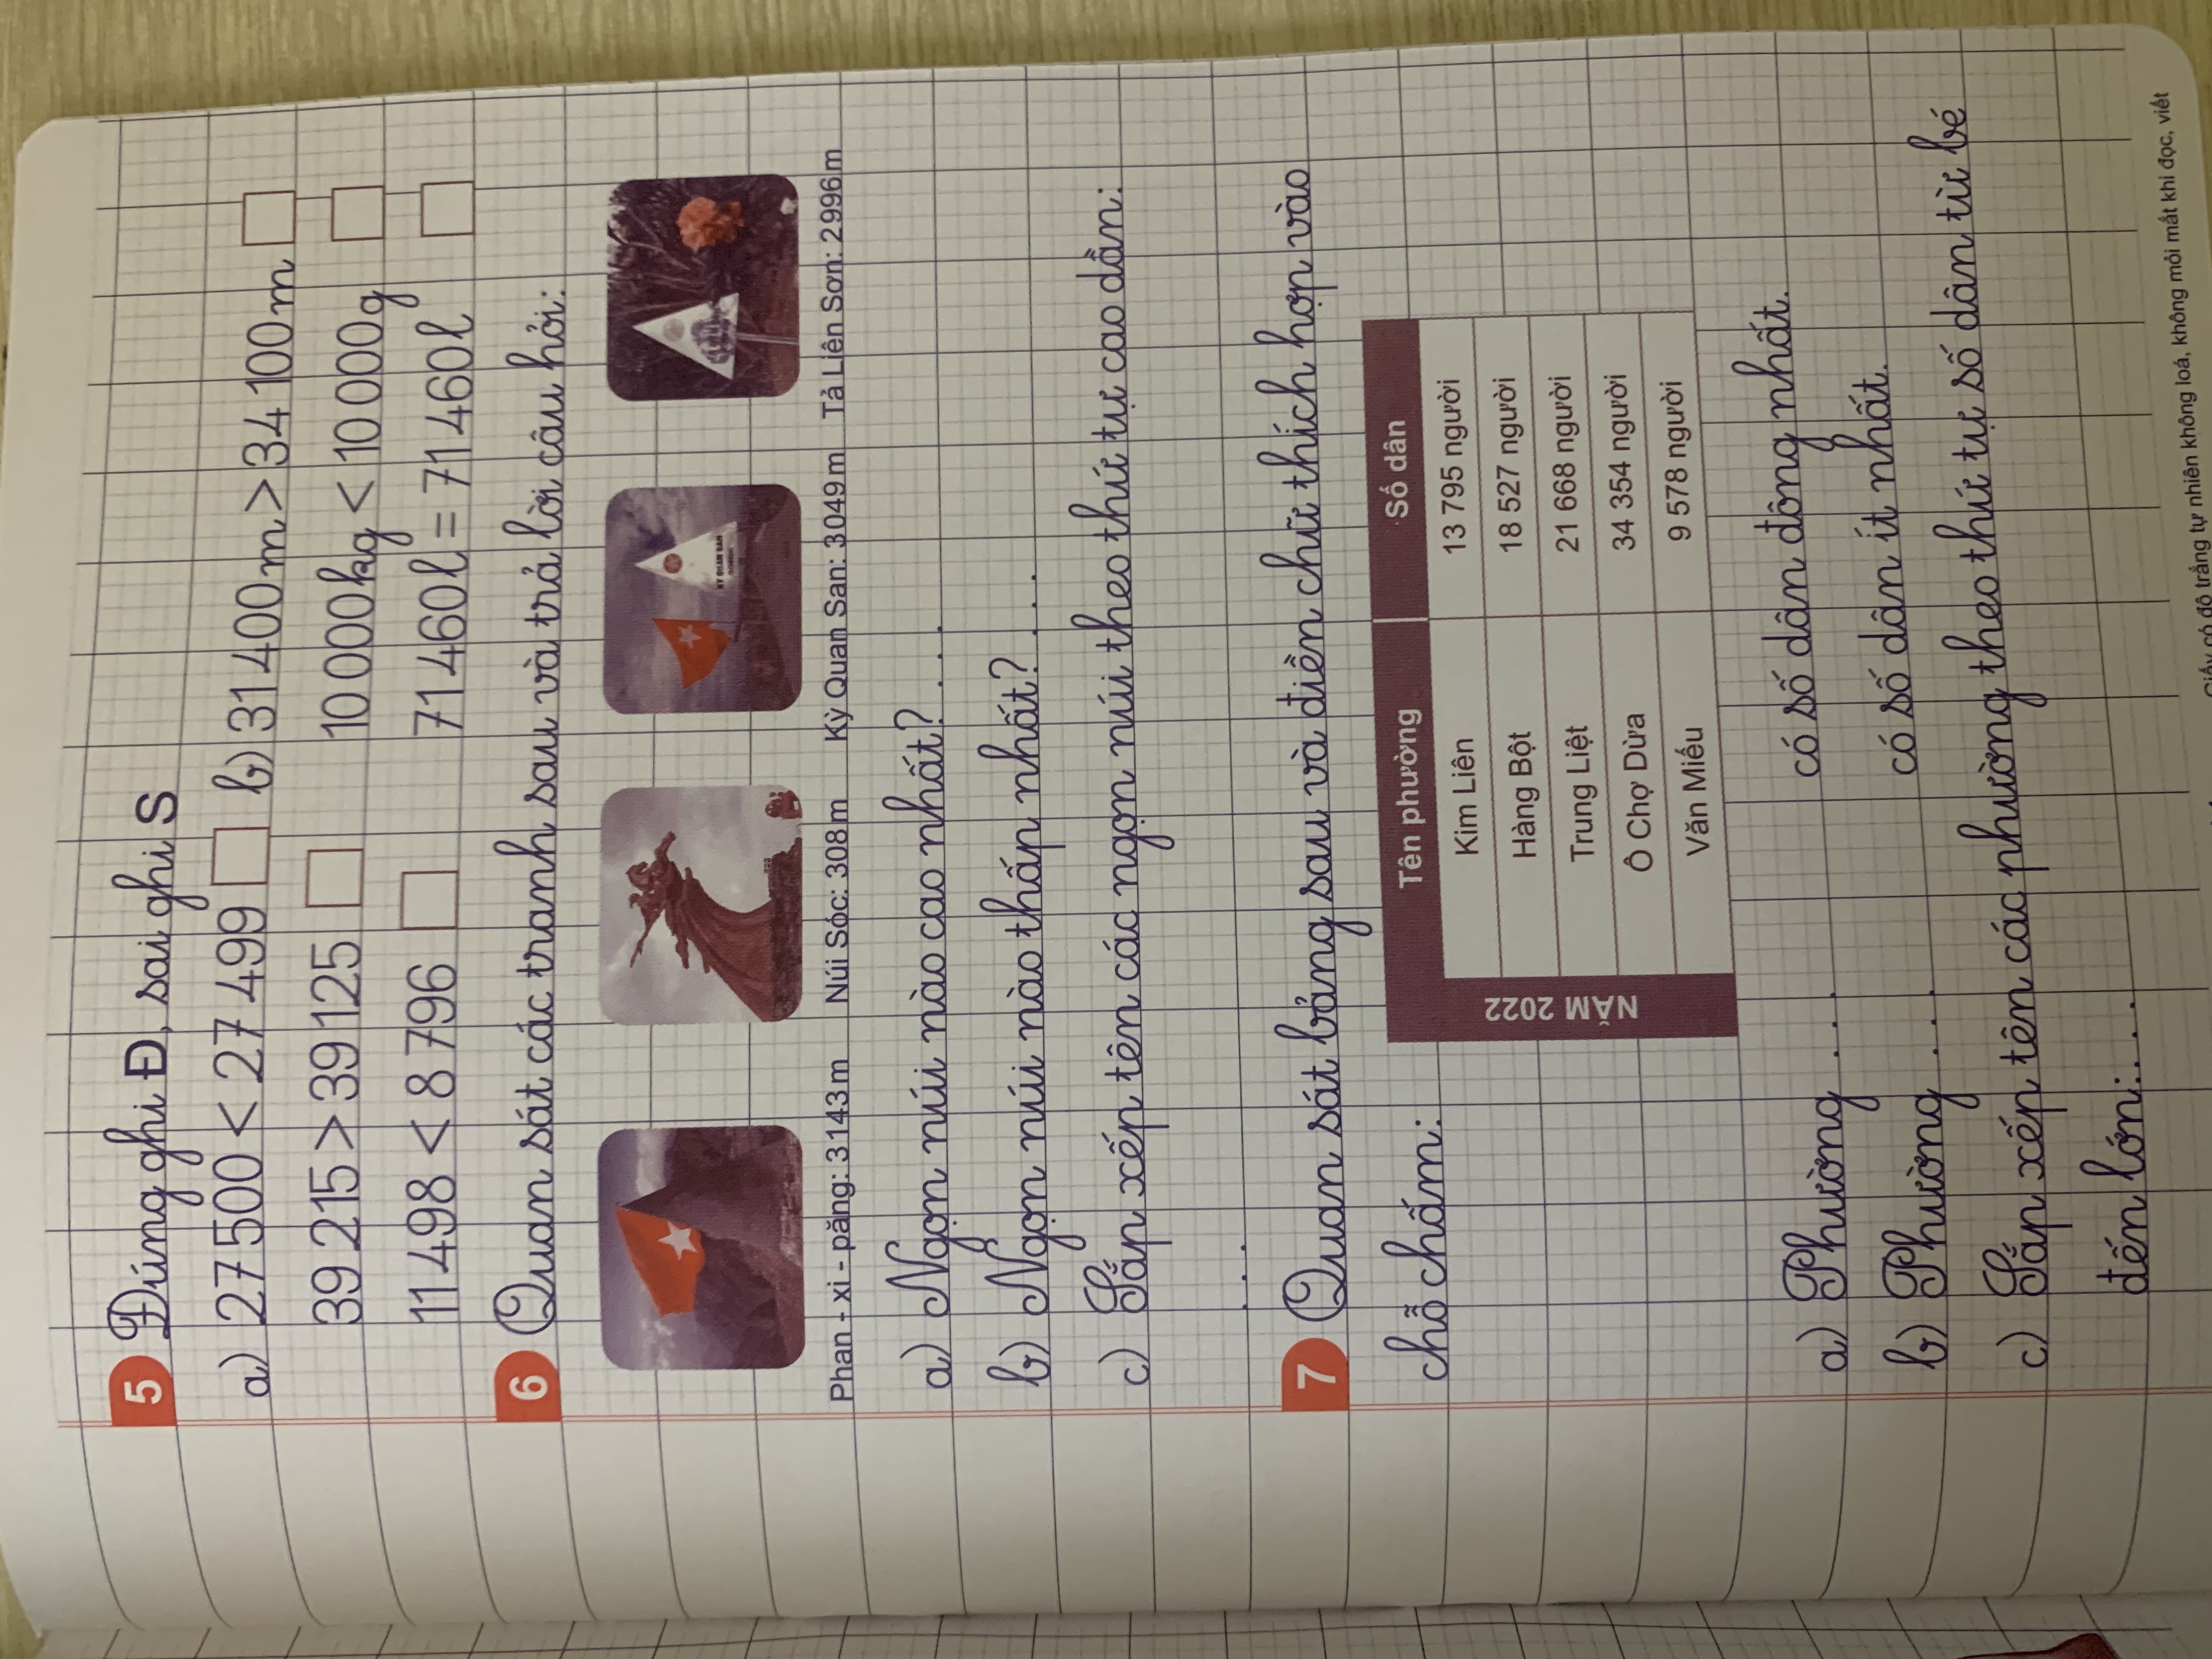 5 Đúng ghi Đ, sai ghi S
a) 27 500 < 27 499 b) 31 400m > 34 100m
39 215 > 39 125 10 000kg < 10 000g
11 498 < 8 796 71 460l = 71 460l
6 Quan sát các tranh sau và trả lời câu hỏi:
KY QUAN SAN
Phan - xi - păng: 3143m Núi Sóc: 308m Kỳ Quan San: 3049m Tả Liên Sơn: 2996m
a) Ngọn núi nào cao nhất? . . .
b) Ngọn núi nào thấp nhất? . . .
c) Sắp xếp tên các ngọn núi theo thứ tự cao dần:
. . .
7 Quan sát bảng sau và điền chữ thích hợp vào
chỗ chấm:
NĂM 2022
Tên phường Số dân
Kim Liên 13 795 người
Hàng Bột 18 527 người
Trung Liệt 21 668 người
Ô Chợ Dừa 34 354 người
Văn Miếu 9 578 người
a) Phường . . . có số dân đông nhất.
b) Phường . . . có số dân ít nhất.
c) Sắp xếp tên các phường theo thứ tự số dân từ bé
đến lớn: . . .
Giấy có độ trắng tự nhiên không loá, không mỏi mắt khi đọc, viết